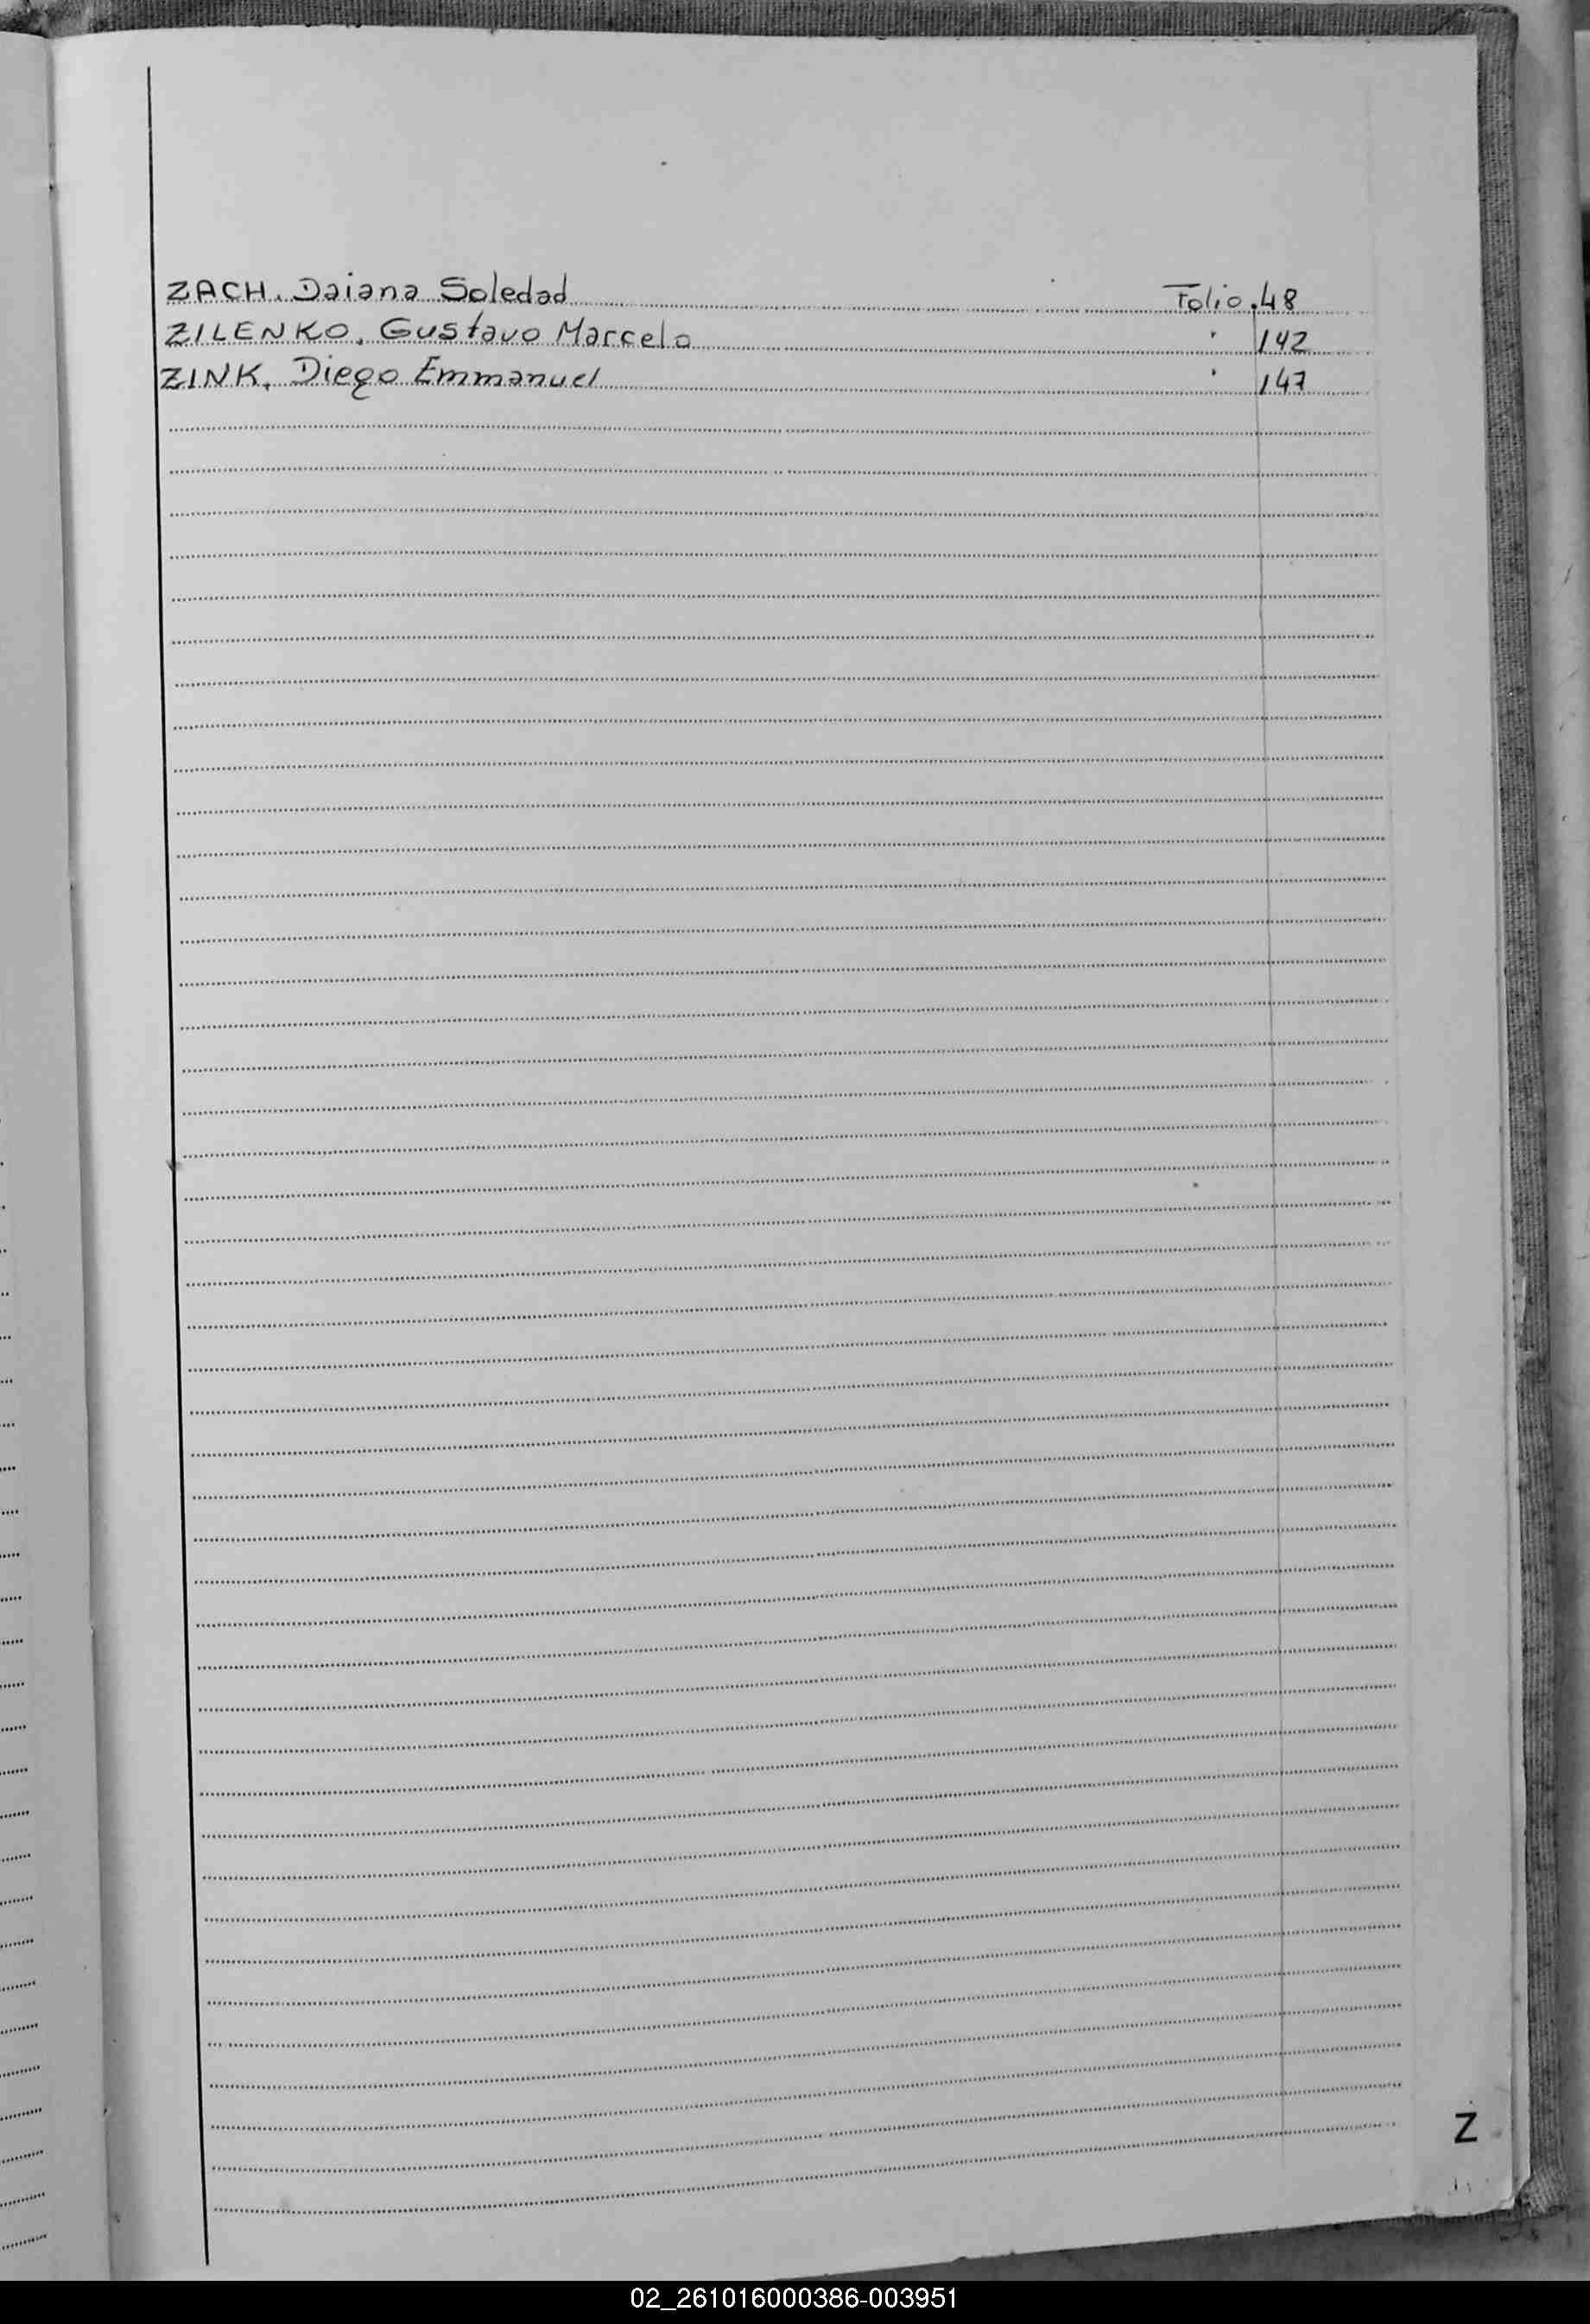 ZACH, Daiana Soledad Folio 48
ZILENKO, Gustavo Marcelo " 142
ZINK, Diego Emmanuel " 147
Z
02_261016000386-003951